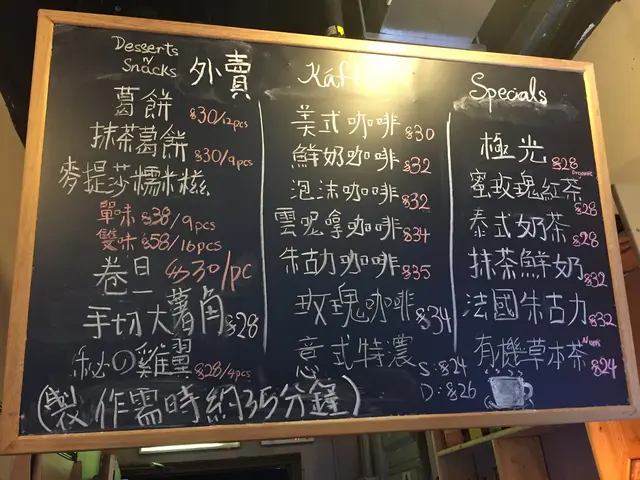 Desserts
n
Snacks
外賣
葛餅 $30/12pcs
抹茶葛餅 $30/9pcs
麥提莎糯米糍
單味 $38/9pcs
雙味 $58/16pcs
卷旦 $30/pc
手切大薯角 $28
秘の雞翼 $28/4pcs
(製作需時約35分鐘)
Káf
美式咖啡 $30
鮮奶咖啡 $32
泡沫咖啡 $32
雲呢拿咖啡 $34
朱古力咖啡 $35
玫瑰咖啡 $34
意式特濃 S:$24
D:$26
Specials
極光 $28
蜜玫瑰紅茶 $28
泰式奶茶 $28
抹茶鮮奶 $32
法國朱古力 $32
有機草本茶 $24